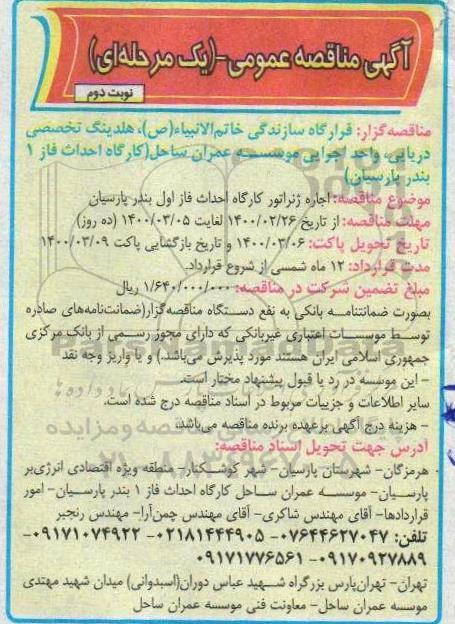 آگهی مناقصه عمومی-(یک مرحله‌ای)
نوبت دوم
مناقصه‌گزار: قرارگاه سازندگی خاتم‌الانبیاء(ص)، هلدینگ تخصصی
دریایی، واحد اجرایی موسسه عمران ساحل(کارگاه احداث فاز ۱
بندر پارسیان)
موضوع مناقصه: اجاره ژنراتور کارگاه احداث فاز اول بندر پارسیان
مهلت مناقصه: از تاریخ ۱۴۰۰/۰۲/۲۶ لغایت ۱۴۰۰/۰۳/۰۵ (ده روز)
تاریخ تحویل پاکت: ۱۴۰۰/۰۳/۰۶ و تاریخ بازگشایی پاکت ۱۴۰۰/۰۳/۰۹
مدت قرارداد: ۱۲ ماه شمسی از شروع قرارداد.
مبلغ تضمین شرکت در مناقصه: ۱/۶۴۰/۰۰۰/۰۰۰ ریال
بصورت ضمانتنامه بانکی به نفع دستگاه مناقصه‌گزار(ضمانت‌نامه‌های صادره
توسط موسسات اعتباری غیربانکی که دارای مجوز رسمی از بانک مرکزی
جمهوری اسلامی ایران هستند مورد پذیرش می‌باشد.) و یا واریز وجه نقد
- این موسسه در رد یا قبول پیشنهاد مختار است.
سایر اطلاعات و جزییات مربوط در اسناد مناقصه درج شده است.
- هزینه درج آگهی برعهده برنده مناقصه می‌باشد.
آدرس جهت تحویل اسناد مناقصه:
هرمزگان- شهرستان پارسیان- شهر کوشکنار- منطقه ویژه اقتصادی انرژی‌بر
پارسیان- موسسه عمران ساحل کارگاه احداث فاز ۱ بندر پارسیان- امور
قراردادها- آقای مهندس شاکری- آقای مهندس چمن‌آرا- مهندس رنجبر
تلفن: ۰۷۶۴۴۶۲۷۰۴۷- ۰۲۱۸۱۴۴۴۹۰۵- ۰۹۱۷۱۰۷۴۹۲۲-
۰۹۱۷۰۹۲۷۸۸۹- ۰۹۱۷۱۷۷۶۵۶۱
تهران- تهران‌پارس بزرگراه شهید عباس دوران(اسبدوانی) میدان شهید مهتدی
موسسه عمران ساحل- معاونت فنی موسسه عمران ساحل